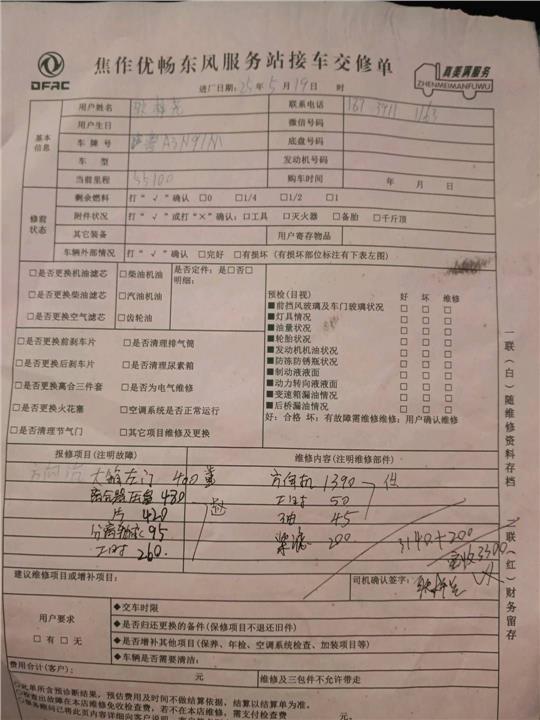 DFAC
焦作优畅东风服务站接车交修单
真美满服务
ZHENMEIMANFUWU
进厂日期：25年5月19日 时
基本信息
用户姓名 联系电话 1163
用户生日 微信号码
车牌号 底盘号码
车型 发动机号码
当前里程 55100 购车时间 年 月 日
修前状态
剩余燃料 打“√”确认 □0 □1/4 □1/2 □1
附件状况 打“√”或打“×”确认：□工具 □灭火器 □备胎 □千斤顶
其它装备 用户寄存物品
车辆外部情况 打“√”确认 □完好 □有损坏（有损坏部位标注有下表左图）
□是否更换机油滤芯 □柴油机油 是否定件：是□否□
明细：
□是否更换柴油滤芯 □汽油机油
□是否更换空气滤芯 □齿轮油
□是否更换前刹车片 □是否清理排气筒
□是否更换后刹车片 □是否清理尿素箱
□是否更换离合三件套 □是否为电气维修
□是否更换火花塞 □空调系统是否正常运行
□是否清理节气门 □其它项目维修及更换
预检(目视) 好 坏 维修
■前挡风玻璃及车门玻璃状况 □ □ □
■灯具情况 □ □ □
■油量状况 □ □ □
■轮胎状况 □ □ □
■发动机机油状况 □ □ □
■防冻防锈瓶状况 □ □ □
■制动液液面 □ □ □
■动力转向液液面 □ □ □
■变速箱漏油情况 □ □ □
■后桥漏油情况 □ □ □
好：合格 坏：有故障需维修维修：用户确认维修
报修项目(注明故障) 维修内容(注明维修部件)
左门 400 方向机 1390 件
离合器压盘 480 工时 50
片 420 油 45
分离轴承 95 200 3140+200
工时 260 实收3300
建议维修项目或增补项目： 司机确认签字：
用户要求
□有 □无
◆交车时限
◆是否归还更换的备件(保修项目不退还旧件)
◆是否增补其他项目(保养、年检、空调系统检查、加装项目等)
◆车辆是否需要清洁：
费用合计(客户)： 元 维修及三包件不允许带走
◎此单所含预诊断结果，预估费用及时间不做结算依据，结算以结算单为准。
◎检查出故障在本店维修免收检查费，若不在本店维修，需支付检查费
元
一联(白)随维修资料存档
二联(红)财务留存